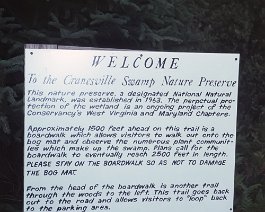 WELCOME
To the Cranesville Swamp Nature Preserve
This nature preserve, a designated National Natural
Landmark, was established in 1963. The perpetual pro-
tection of the wetland is an ongoing project of the
Conservancy's West Virginia and Maryland Chapters.
Approximately 1500 feet ahead on this trail is a
boardwalk which allows visitors to walk out onto the
bog mat and observe the numerous plant communit-
ies which make up the swamp. Plans call for the
boardwalk to eventually reach 2500 feet in length.
PLEASE STAY ON THE BOARDWALK SO AS NOT TO DAMAGE
THE BOG MAT.
From the head of the boardwalk is another trail
through the woods to the left. This trail goes back
out to the road and allows visitors to "loop" back
to the parking area.